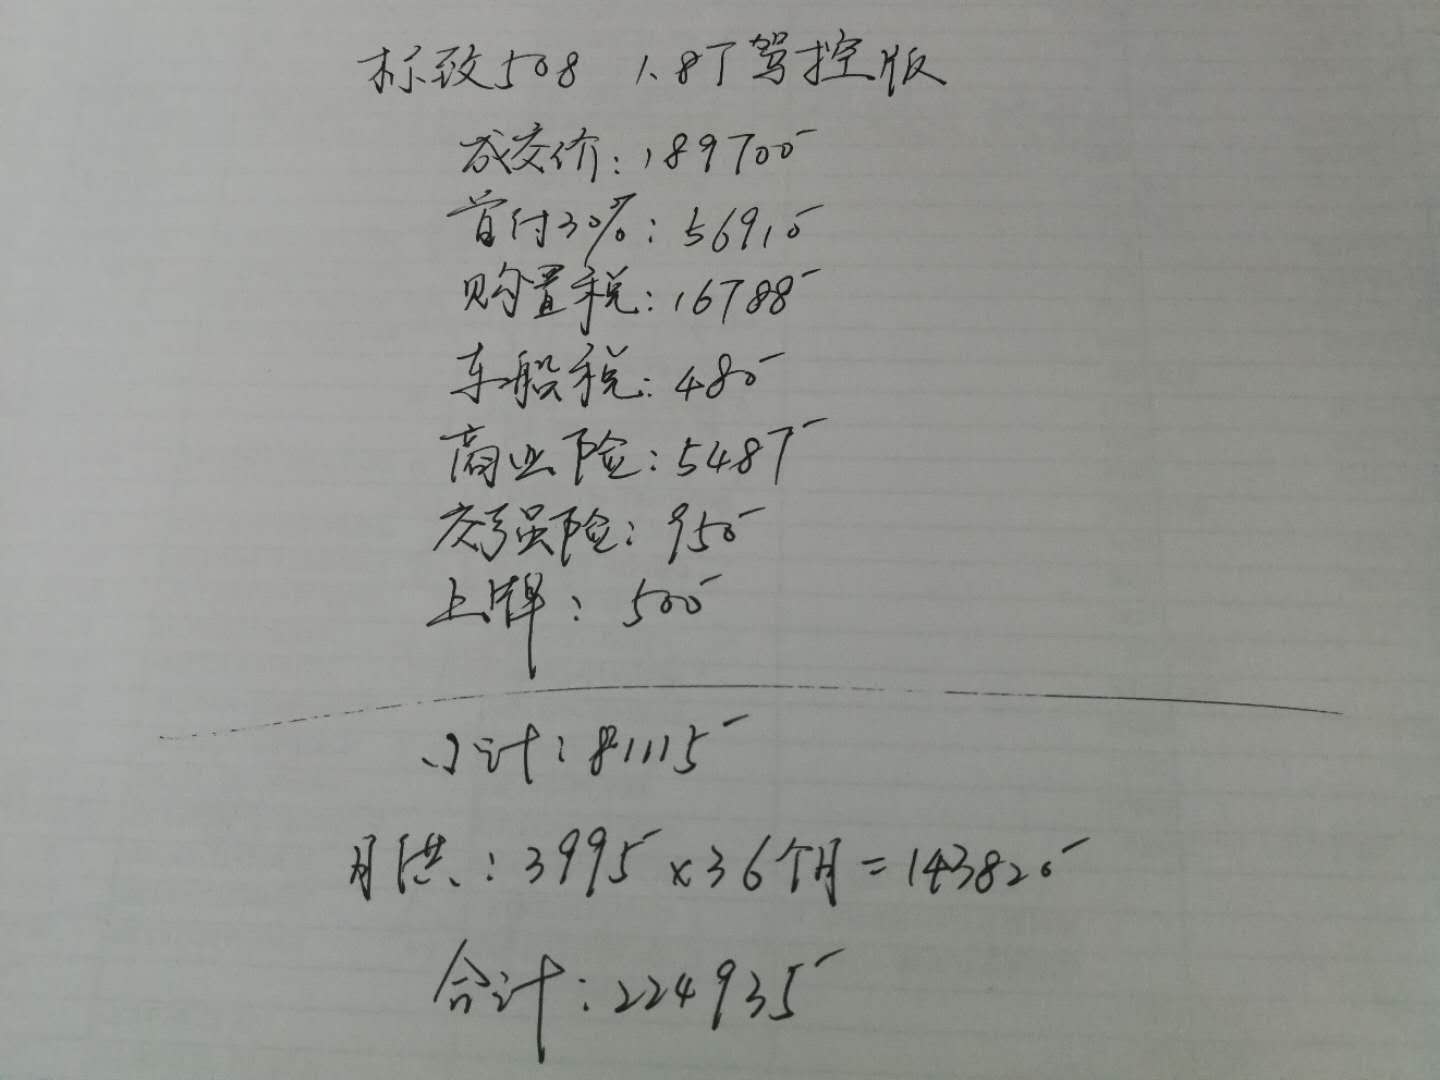 标致508 1.8T驾控版
成交价:189700
首付30%:56910
购置税:16788
车船税:480
商业险:5487
交强险:950
上牌:500
小计:81115
月供:3995×36个月=143820
合计:224935